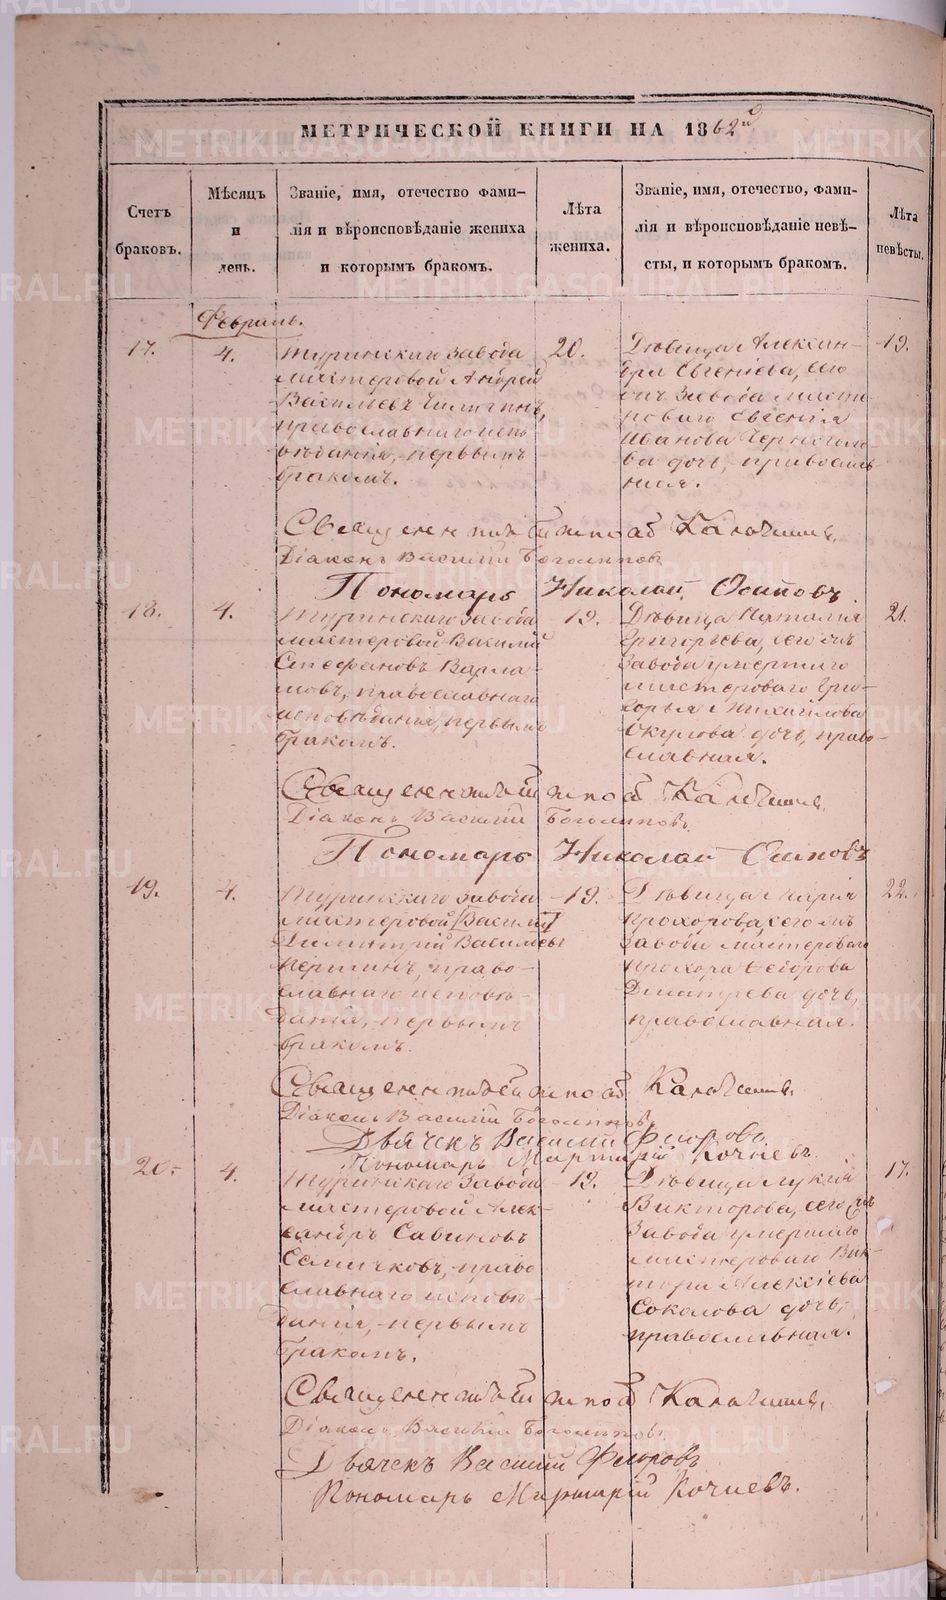 МЕТРИЧЕСКОЙ КНИГИ НА 1862й
Счетъ браковъ.
Мѣсяцъ и день.
Званіе, имя, отечество фами-
лія и вѣроисповѣданіе жениха
и которымъ бракомъ.
Лѣта жениха.
Званіе, имя, отечество, фами-
лія и вѣроисповѣданіе невѣ-
сты, и которымъ бракомъ.
Лѣта невѣсты.
Февраль.
17.
4.
Туринскаго завода
мастеровой Андрей
Васильевъ
православнаго испо
вѣданія, первымъ
бракомъ.
20.
Дѣвица Алексан-
дра Евгеніева, сего
жъ завода масте
роваго Евгенія
Иванова Черноголо
ва дочь, православ
ная.
19.
Священникъ Калачниковъ
Діаконъ Василій Боголѣповъ
Пономарь Николай Осиповъ
18.
4.
Туринскаго завода
мастеровой Василій
Стефановъ Варла-
мовъ, православнаго
исповѣданія, первымъ
бракомъ.
19.
Дѣвица Наталія
Григорьева, сего жъ
завода умершаго
мастероваго Григо-
рья Михайлова
Окулова дочь, право-
славная.
21.
Діаконъ Василій Боголѣповъ
Пономарь Николай Осиповъ
19.
4.
Туринскаго завода
мастеровой [Василій]
Димитрій Васильевъ
право-
славнаго исповѣ
данія, первымъ
бракомъ.
19.
Дѣвица Марія
Прохорова, сего жъ
завода мастероваго
Прохора Ѳедорова
дочь,
православная.
22.
Діаконъ Василій Боголѣповъ
Дьячекъ Василій Флоровъ
Пономарь Мартирій Кочневъ.
20.
4.
Туринскаго завода
мастеровой Алек-
сандръ Савиновъ
Семячковъ, право
славнаго исповѣ-
данія, первымъ
бракомъ.
19.
Дѣвица Лукія
Викторова, сего жъ
завода умершаго
мастероваго Вик-
тора Алексіева
Соколова дочь,
православная.
17.
Діаконъ Василій Боголѣповъ
Дьячекъ Василій Флоровъ
Пономарь Мартирій Кочневъ.
METRIKI.GASO-URAL.RU